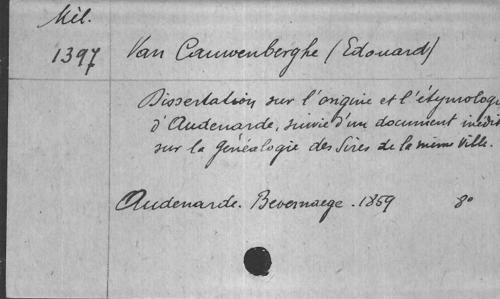 Mél.
1397
Van Cauwenberghe (Edouard)
Dissertation sur l'origine et l'étymologi
d'Audenarde, suivie d'un document inédit
sur la généalogie des Sires de la même Ville.
Audenarde. Bevernaege. 1869 8°